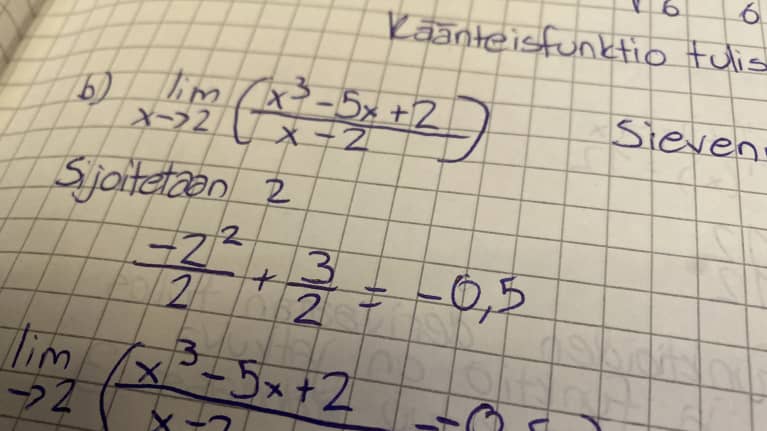 6 6
Käänteisfunktio
b) lim x→2 (x³-5x+2 / x-2)
Sijoitetaan 2
-2²/2 + 3/2 = -0,5
lim →2 (x³-5x+2 / x-2